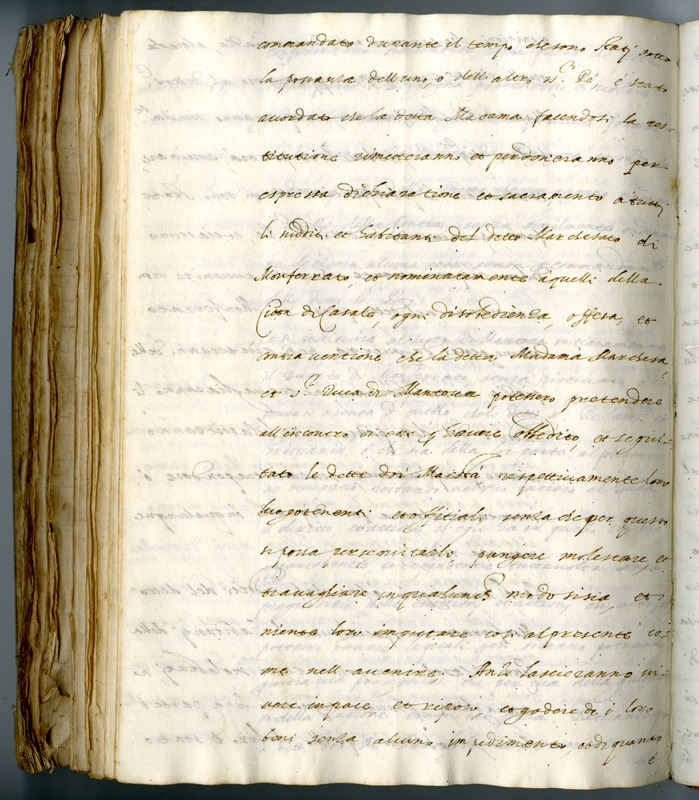 commandato durante il tempo che sono stati sotto
la possanza dell'uno, ò dell'altro sr. Rè, è stato
accordato che la detta Madama facendosi la res-
titutione rimetteranno et perdoneranno per
espressa dichiaratione et sacramento a tutti
li sudditi et habitanti del detto Marchesato di
Monferrato, et nominatamente à quelli della
Città di Casale, ogni disobedienza, offesa, et
contraventione che la detta Madama Marchesa,
et sr. Duca di Mantova potessero pretendere
all'incontro di essi per havere obbedito, et sequi-
tato le dette doi Maestà respettivamente loro
luogotenenti, et officiali senza che per questo
si possa perseguitarli pungere molestare, et
travagliare in qualunque modo si sia, et
niente loro imputare così al presente co-
me nell'avenire. Anzi lascieranno vi-
vere in pace et riposo, et godere di i loro
beni senza alcuno impedimento, et di quanto
è